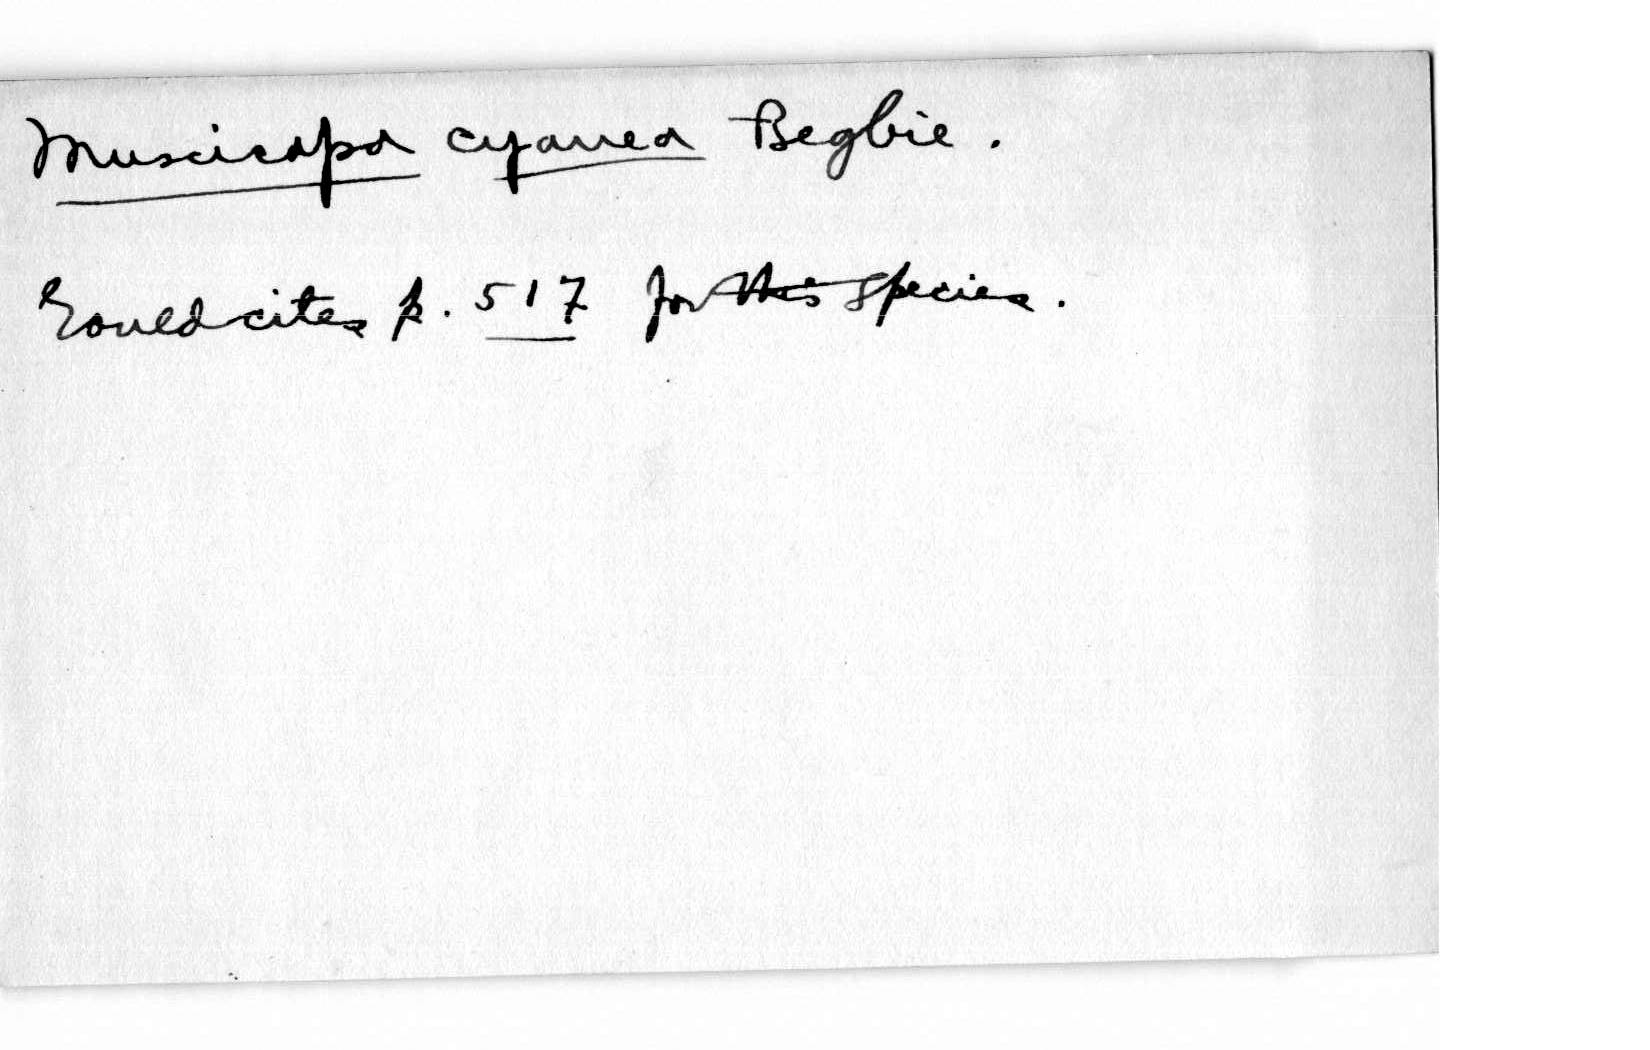 Muscicapa cyanea Begbie.
Gould cites p. 517 for this species.